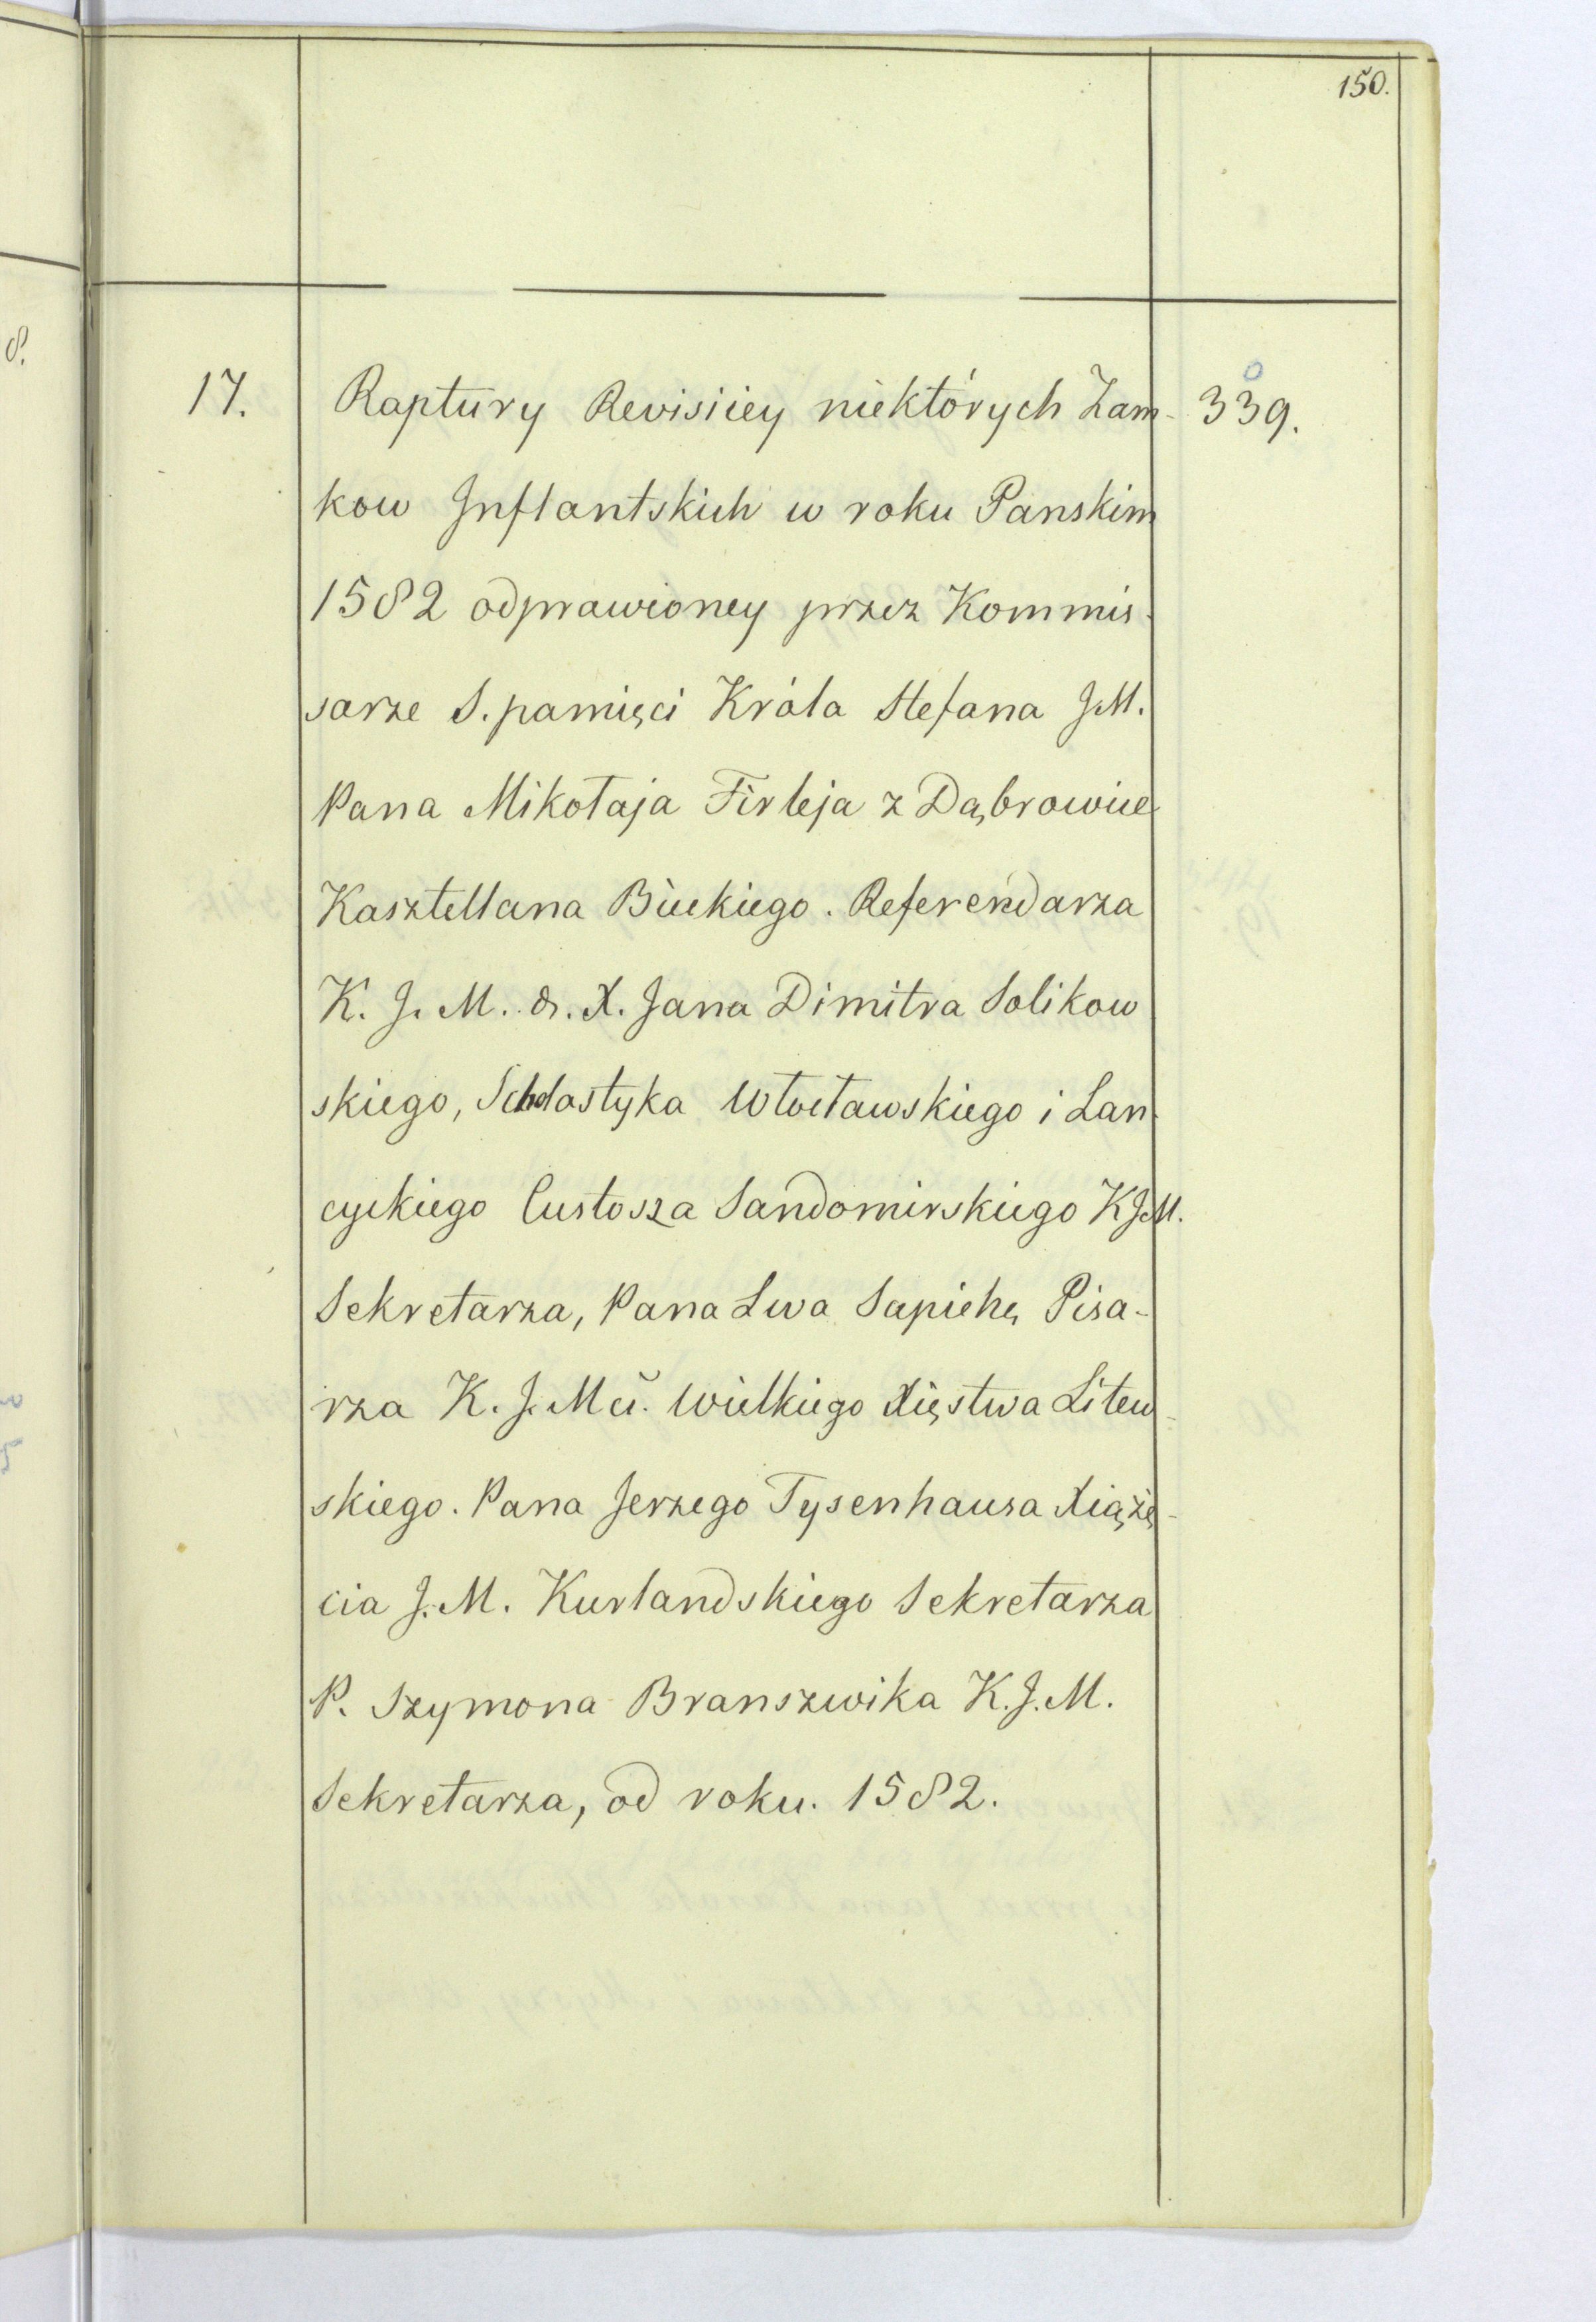 150.
17. Raptury Revisiiey niektórych Zam- 339.
kow Inflantskich w roku Panskim
1582 odprawioney przez Kommis-
sarze S. pamięci Króla Stefana J.M.
Pana Mikołaja Firleja z Dąbrowice
Kasztellana Bieckiego. Referendarza
K. J. M. X. Jana Dimitra Solikow
skiego, Scholastyka Włocławskiego i Lan-
cyckiego Custosza Sandomirskiego KJM.
Sekretarza, Pana Lwa Sapiehę Pisa-
rza K. J. Mci. Wielkiego Xięstwa Litew-
skiego. Pana Jerzego Tysenhausa Xiążę-
cia J. M. Kurlandskiego Sekretarza
P. Szymona Branszwika K. J. M.
Sekretarza, od roku. 1582.